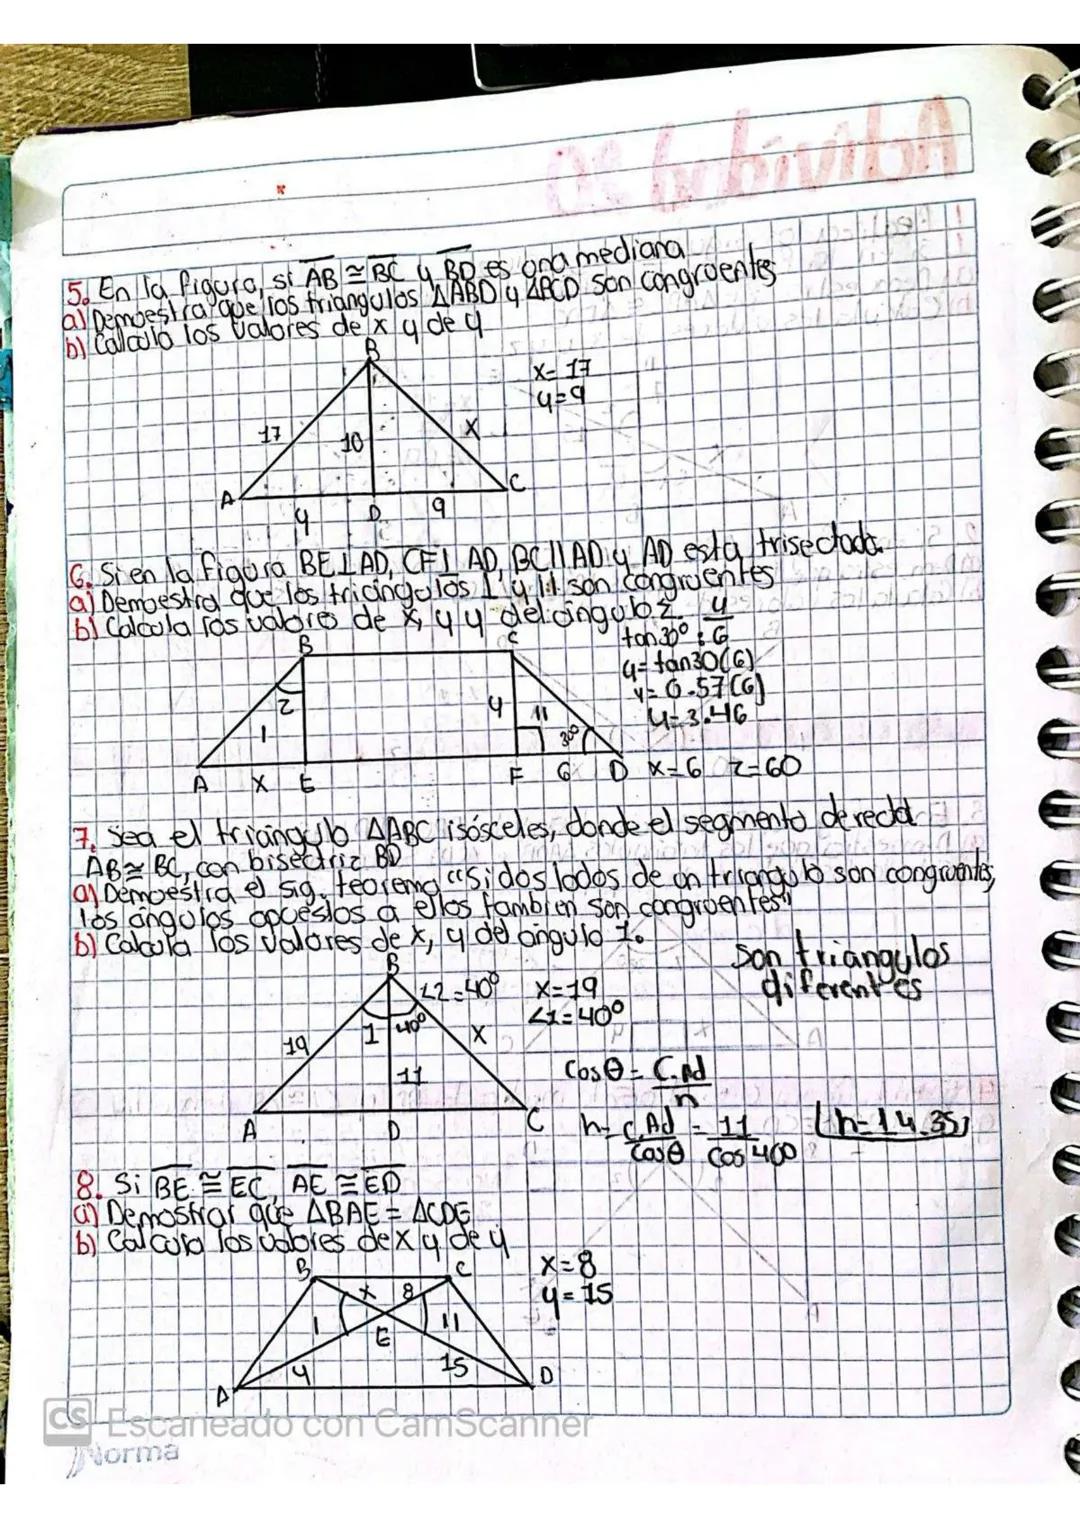 Actividad 20
5. En la figura, si AB ≅ BC y BD es una mediana
a) Demoestra que los triangulos △ABD y △BCD son congruentes
b) Calculo los valores de x y de y
B
17
10
x
x= 17
y=9
A
y
D
9
C
6. Si en la figura BE⊥AD, CF⊥AD, BC||AD y AD esta trisectada.
a) Demoestra que los triangulos 1 y 11 son congruentes
b) Calcula los valores de x, y y del angulo z.
B
C
2
1
y
11
30°
A
x
E
F
6
D
y
tan 30° : 6
y= tan30(6)
y= 0.57(6)
y=3.46
x=6 z=60
7. Sea el triangulo △ABC isósceles, donde el segmento de recta
AB≅ BC, con bisectriz BD
a) Demoestra el sig. teorema "Si dos lados de un triangulo son congruentes,
los angulos opuestos a ellos tambien son congruentes"
b) Calcula los valores de x, y del angulo 1.
Son triangulos
diferentes
B
∠2=40°
1
40°
19
x
11
A
D
C
x=19
∠1=40°
Cosθ= C.Ad
h
h= C.Ad = 11
Cosθ Cos 40°
h=14.35
8. Si BE ≅ EC, AE ≅ ED
a) Demostrar que △BAE = △CDE
b) Calcula los valores de x y de y
B
C
x
8
1
E
11
y
15
A
D
x=8
y=15
CS Escaneado con CamScanner
Norma